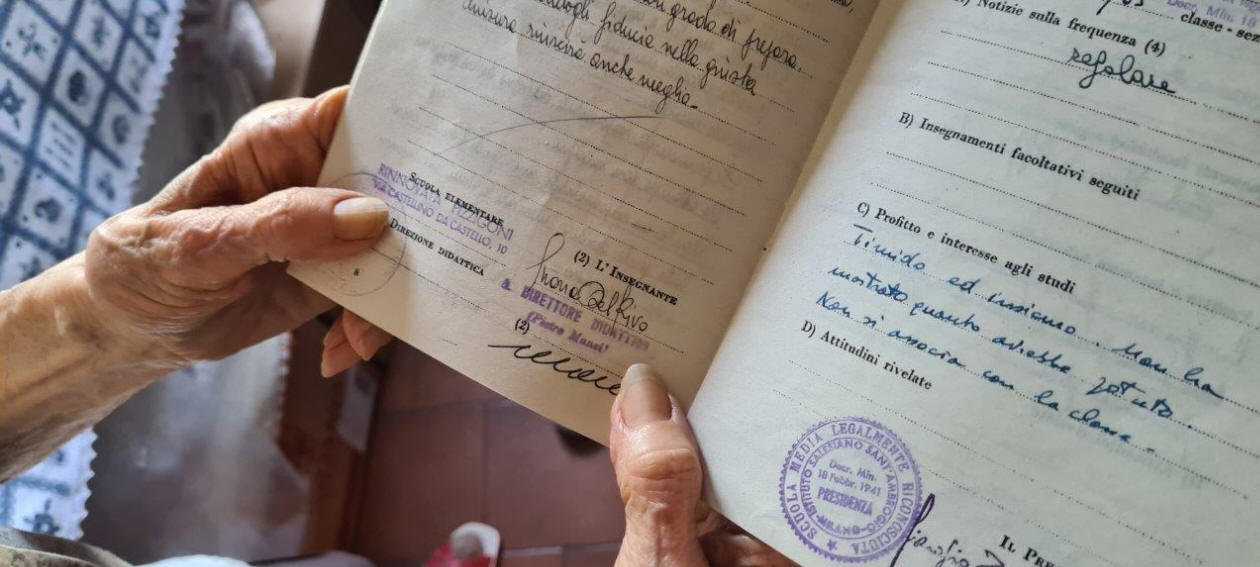 grado di
fiducia nella giusta
misura riuscirà anche meglio.
SCUOLA ELEMENTARE
RINNOVATA PIZZIGONI
VIA CASTELLINO DA CASTELLO, 10
DIREZIONE DIDATTICA
(2) L'INSEGNANTE
IL DIRETTORE DIDATTICO
(2)
Decr. Min.
classe - sez
Notizie sulla frequenza (4)
regolare
B) Insegnamenti facoltativi seguiti
C) Profitto e interesse agli studi
Timido ed insicuro. Non ha
mostrato quanto avrebbe potuto.
Non si associa con la classe.
D) Attitudini rivelate
SCUOLA MEDIA LEGALMENTE RICONOSCIUTA
ISTITUTO SALESIANO SANT'AMBROGIO
Decr. Min.
18 Febbr. 1941
PRESIDENZA
MILANO
IL PRE